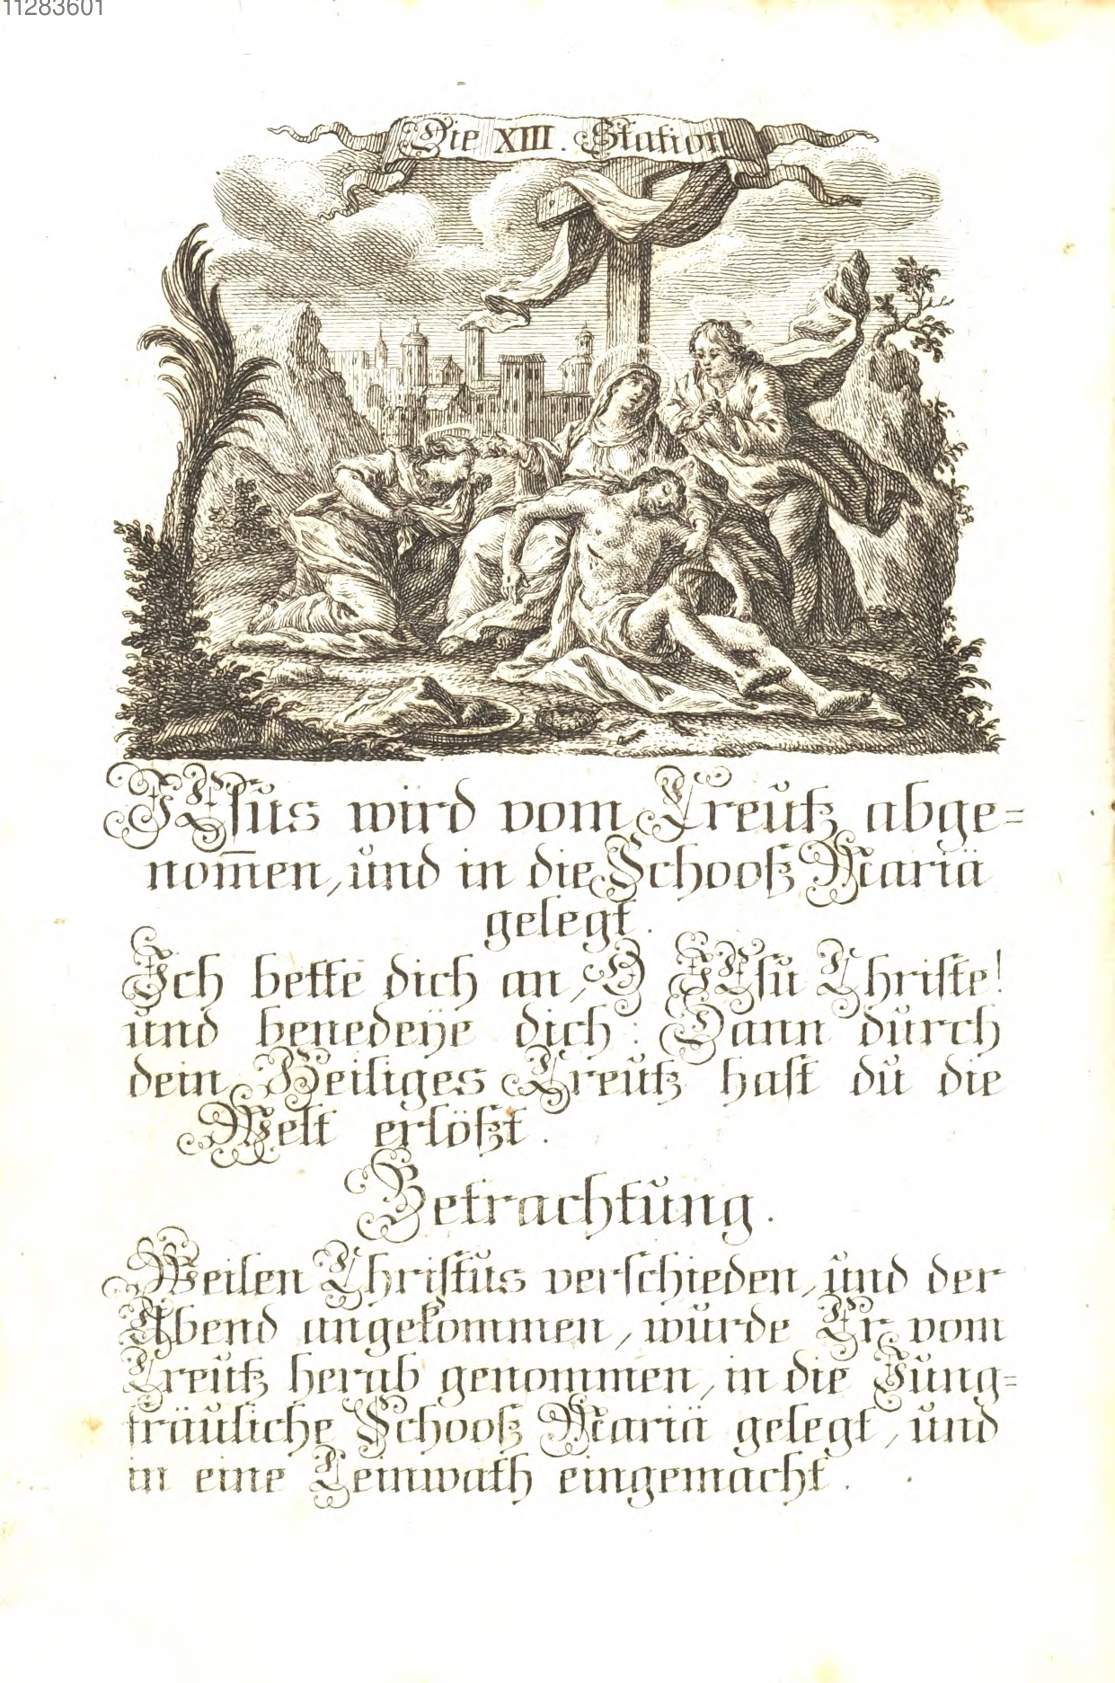 11283601
Die XIII. Station
JEsus wird vom Creutz abge=
nom̄en, und in die Schooß Mariä
gelegt.
Ich bette dich an, O JEsu Christe!
und benedeÿe dich: Dann durch
dein Heiliges Creutz hast du die
Welt erlößt.
Betrachtung.
Weilen Christus verschieden, und der
Abend angekommen, wurde Er vom
Creutz herab genommen, in die Jung=
fräuliche Schooß Mariä gelegt, und
in eine Leinwath eingemacht.